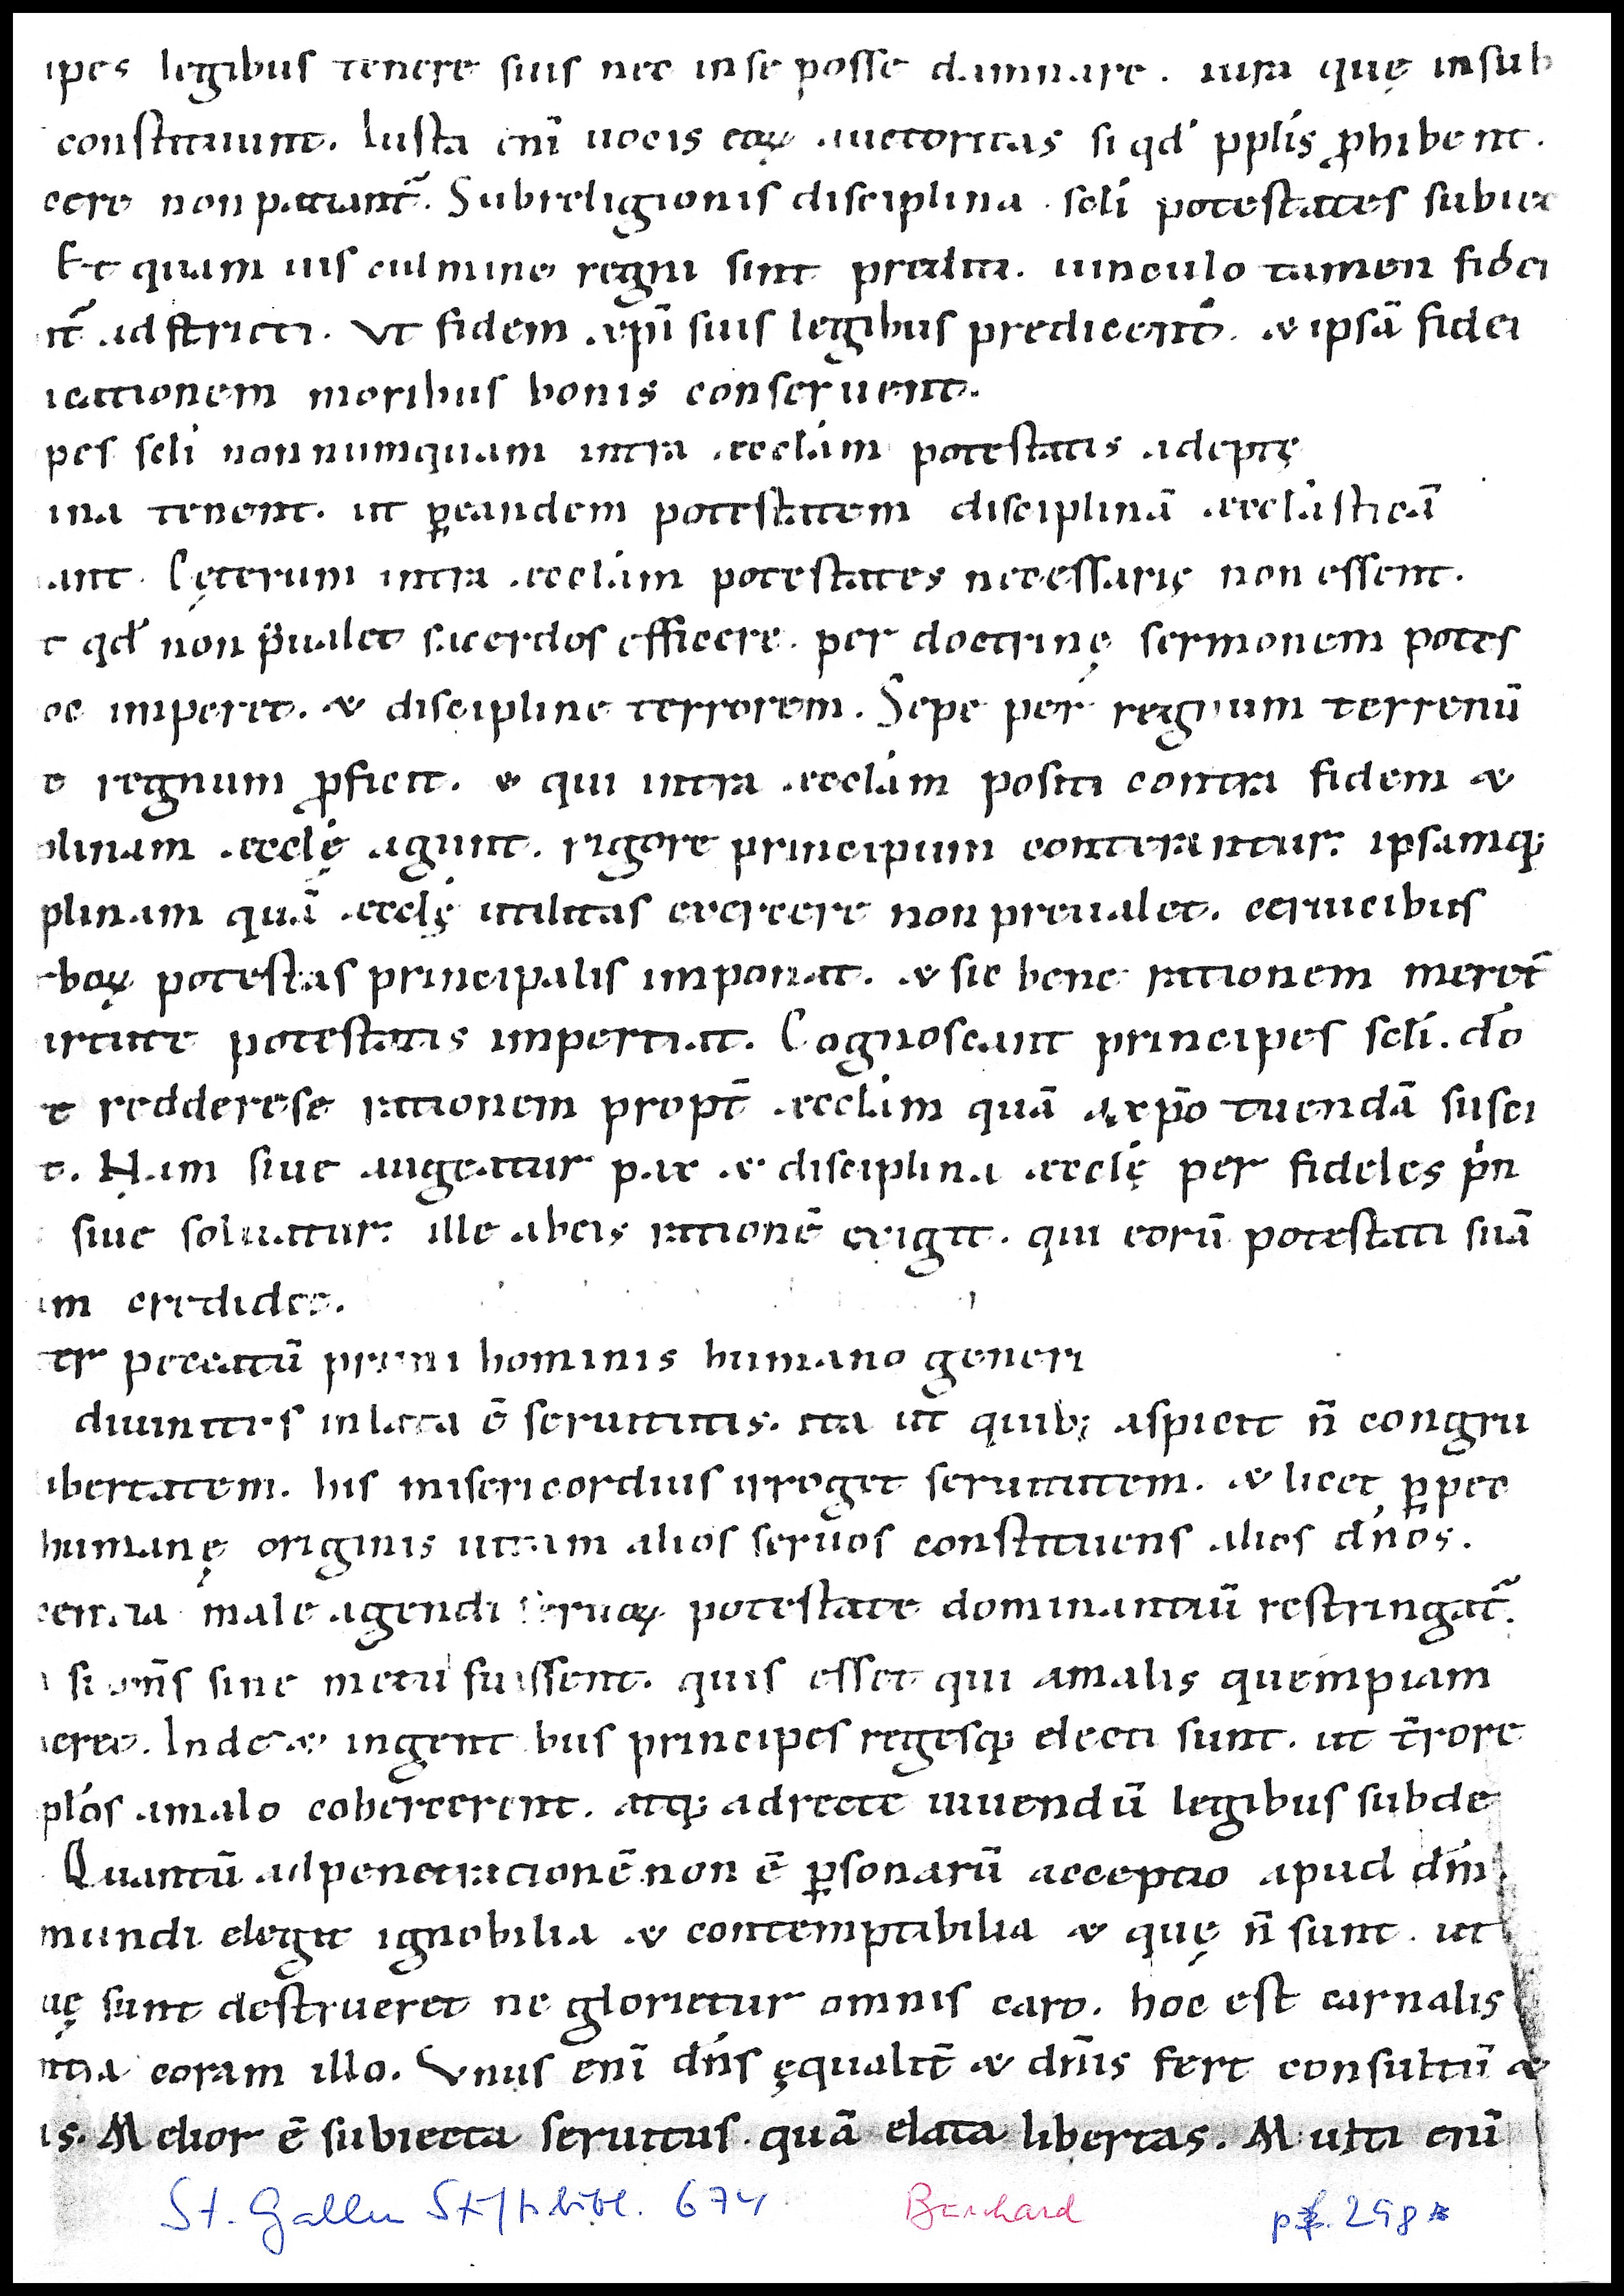 ipes legibus tenere suis nec inse posse damnare. iura quę insub
constituunt. Iusta eni̅ uocis eoꝝ auctoritas si qd̕ ppl̕is ꝓhibent.
cere non patiant᷑. Subreligionis disciplina. scl̕i potestates subiec
Et quam uis culmine regni sint prediti. uinculo tamen fidei
nt᷑ adstricti. ut fidem xpi̅ suis legibus predicent. & ipsa̅ fidei
icationem moribus bonis conseruent.
pes scl̕i nonnumquam intra aeccl̕am potestatis adeptę
ina tenent. ut ꝑeandem potestatem disciplina̅ aeccl̕astica̅
ant. Cęterum intra aeccl̕am potestates necessarię non essent.
t qd̕ non p̅ualet sacerdos efficere. per doctrinę sermonem potes
oc imperet. & discipline terrorem. Sepe per regnum terrenu̅
e regnum ꝓficit. & qui intra aeccl̕am positi contra fidem &
plinam aeccl̕ę agunt. rigore principum conterantur. ipsamq;
plinam qua̅ aeccl̕ę utilitas exercere non preualet. ceruicibus
rboꝝ potestas principalis imponat. & sic bene rationem meret᷑
irtute potestatis impertiat. Cognoscant principes scl̕i. do̅
e redderese rationem propt̅ aeccl̕am qua̅ axp̅o tuenda̅ susci
t. Nam siue augeatur pax & disciplina aeccl̕ę per fideles p̕n
siue soluatur. ille abeis ratione̅ exigit. qui eoru̅ potestati sua̅
am credidet.
ter peccatu̅ primi hominis humano generi
diuinitus inlata e̅ seruitutis. ita ut quib; aspicit n̅ congru
ibertatem. his misericordius irroget seruitutem. & licet ꝑpec
humanę originis uitam alios seruos constituens alios dn̅os.
centia male agendi seruoꝝ potestate dominantiu̅ restringat᷑.
i si om̅s sine metu fuissent. quis esset qui amalis quempiam
ieret. Inde & ingentibus principes regesq; electi sunt. ut t̅rore
pl̕os amalo cohercerent. atq; adrecte uiuendu̅ legibus subde
Quantu̅ adpenetracione̅ non e̅ ꝑsonaru̅ acceptio apud dm̅.
mundi elegit ignobilia & contemptibilia & quę n̅ sunt. ut
uę sunt destrueret ne glorietur omnis caro. hoc est carnalis
ntia coram illo. Vnus eni̅ dn̅s ęqualit̅ & dn̅is fert consultu̅ &
is. Melior e̅ subiecta seruitus. qua̅ elata libertas. Multi eni̅
St. Gallen Stiftsbibl. 674 Burchard p. 298